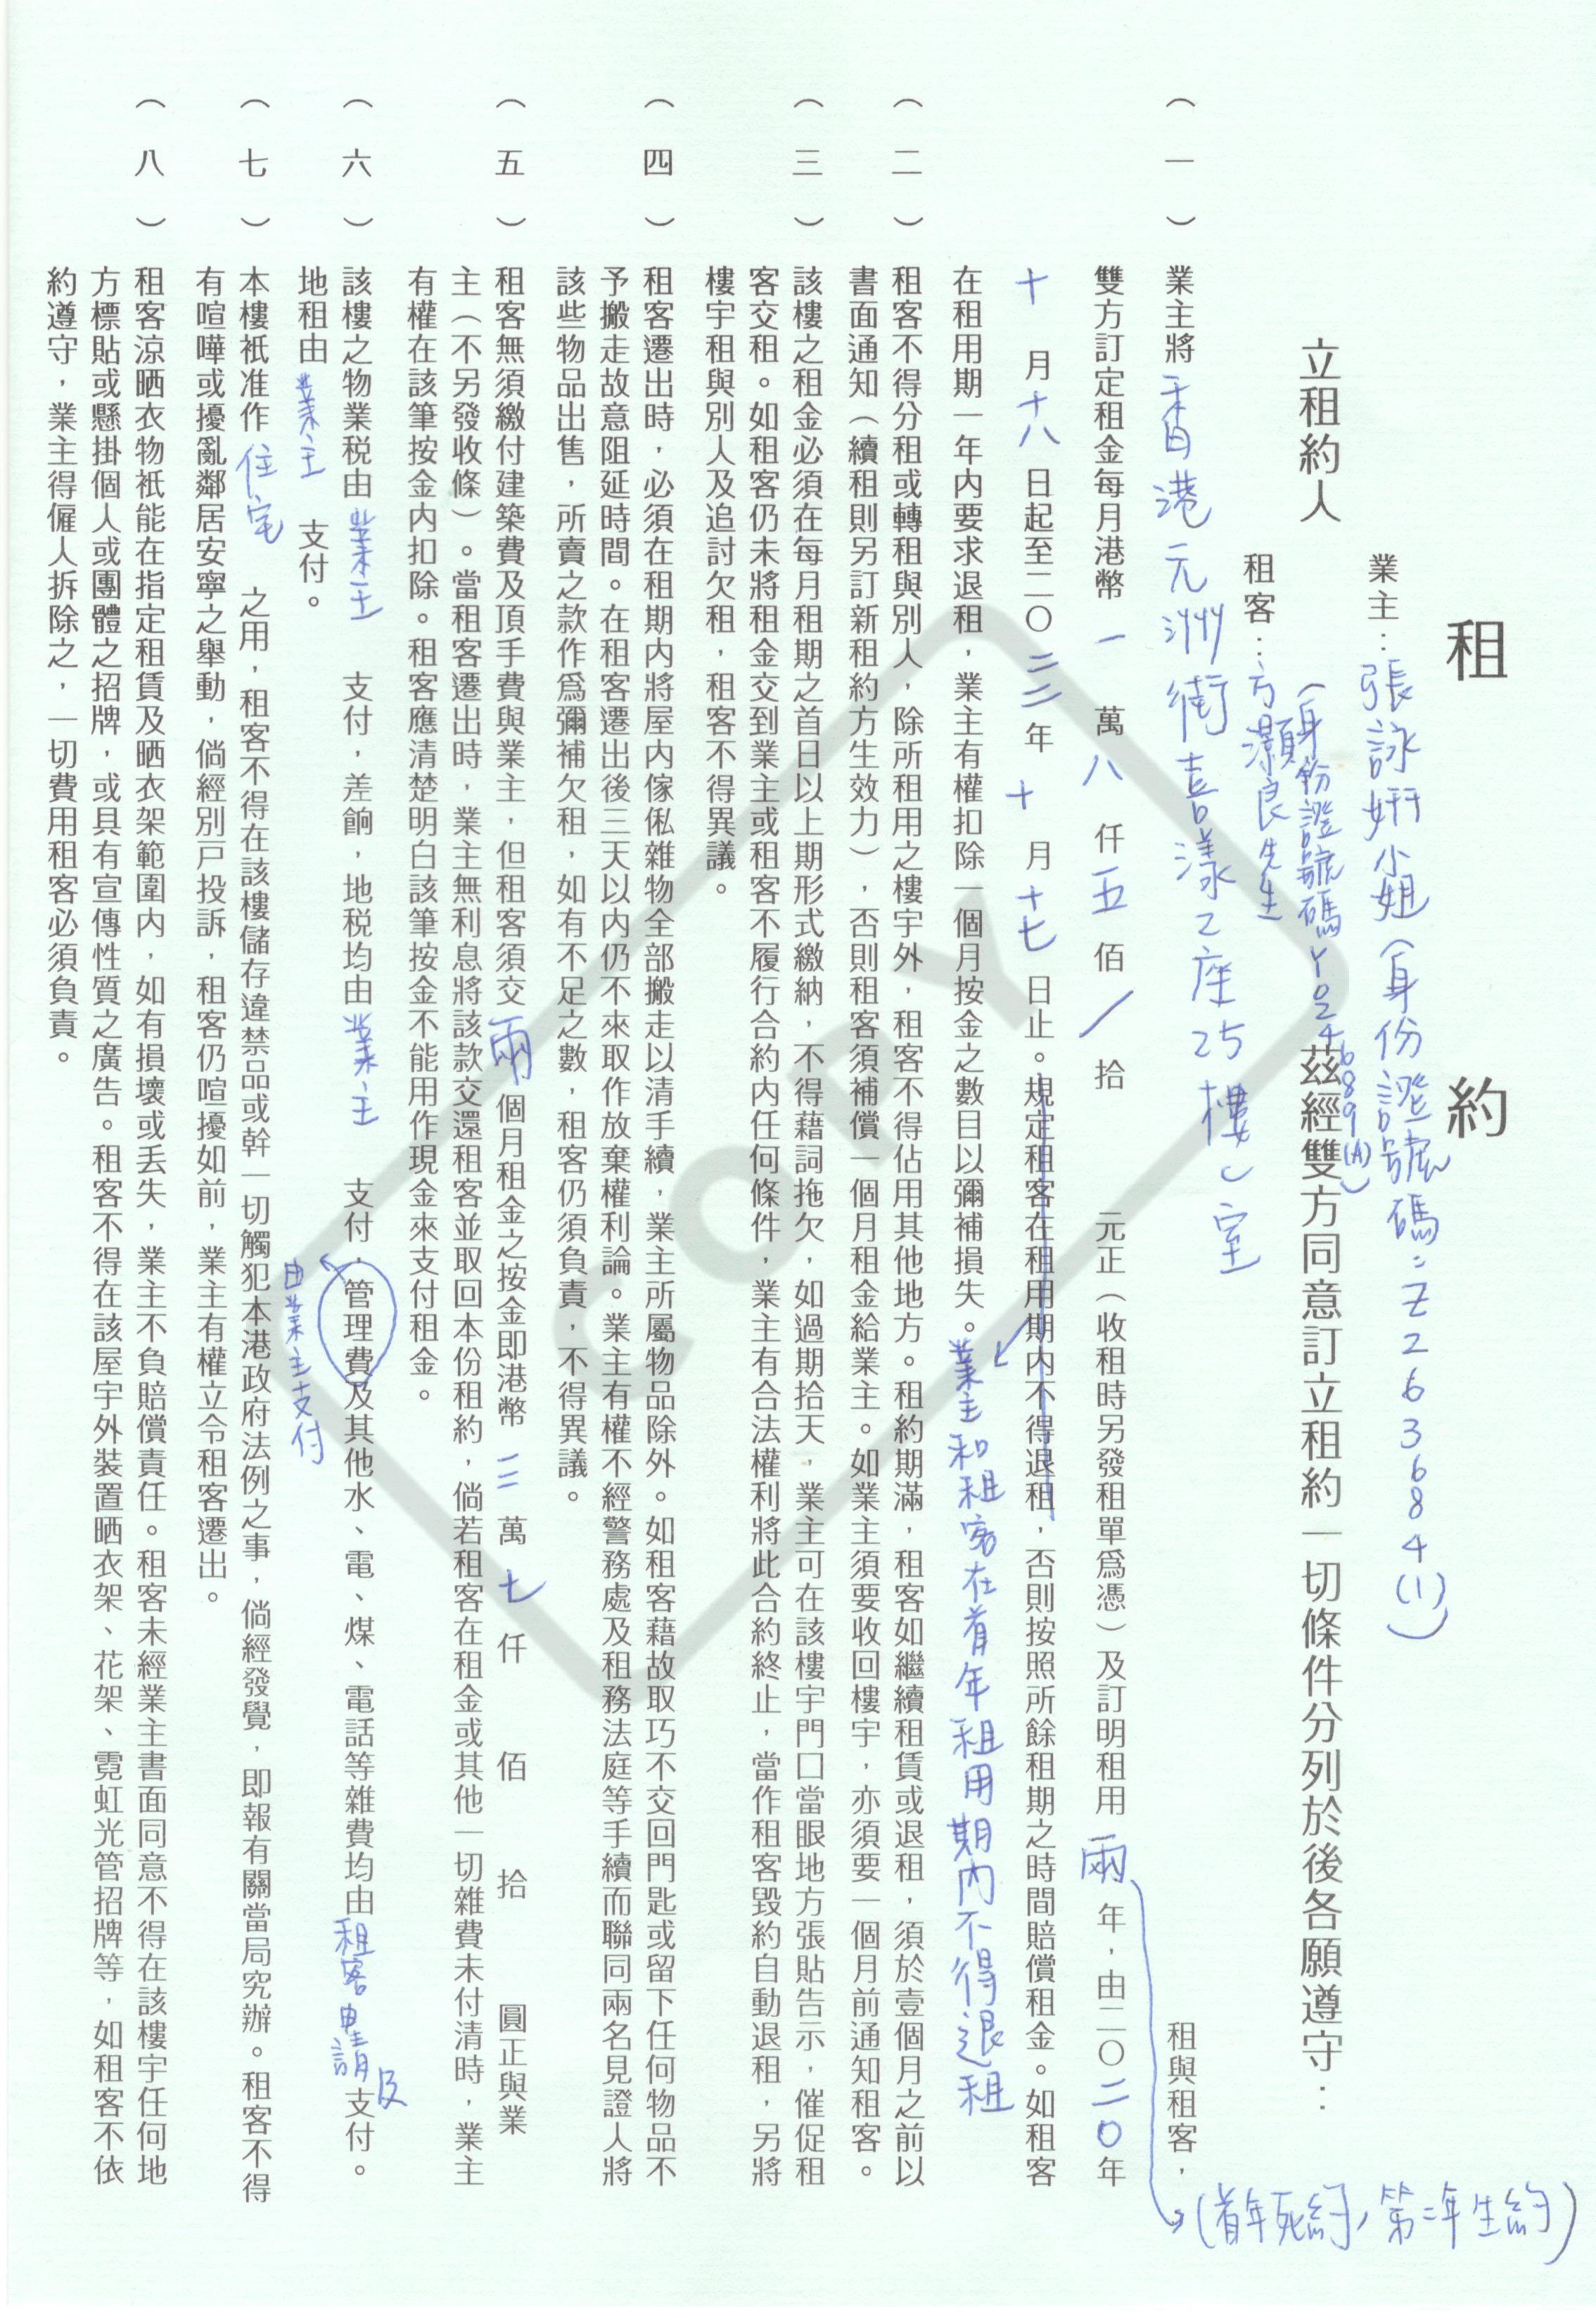 租約
業主：張詠妍小姐（身份證號碼：Z263684(1)）
立租約人 茲經雙方同意訂立租約一切條件分列於後各願遵守：
（身份證號碼Y0246889(A)）
租客：方灝良先生
（一）業主將 香港元洲街喜漾2座25樓 室 租與租客，
雙方訂定租金每月港幣 一 萬 八 仟 五 佰 / 拾 元正（收租時另發租單爲憑）及訂明租用 兩 年，由二〇二〇年
（首年死約，第二年生約）
十 月 十八 日起至二〇二二年 十 月 十七 日止。規定租客在租用期內不得退租，否則按照所餘租期之時間賠償租金。如租客
業主和租客在首年租用期內不得退租
在租用期一年內要求退租，業主有權扣除一個月按金之數目以彌補損失。
（二）租客不得分租或轉租與別人，除所租用之樓宇外，租客不得佔用其他地方。租約期滿，租客如繼續租賃或退租，須於壹個月之前以
書面通知（續租則另訂新租約方生效力），否則租客須補償一個月租金給業主。如業主須要收回樓宇，亦須要一個月前通知租客。
（三）該樓之租金必須在每月租期之首日以上期形式繳納，不得藉詞拖欠，如過期拾天，業主可在該樓宇門口當眼地方張貼告示，催促租
客交租。如租客仍未將租金交到業主或租客不履行合約內任何條件，業主有合法權利將此合約終止，當作租客毀約自動退租，另將
樓宇租與別人及追討欠租，租客不得異議。
（四）租客遷出時，必須在租期內將屋內傢俬雜物全部搬走以清手續，業主所屬物品除外。如租客藉故取巧不交回門匙或留下任何物品不
予搬走故意阻延時間。在租客遷出後三天以內仍不來取作放棄權利論。業主有權不經警務處及租務法庭等手續而聯同兩名見證人將
該些物品出售，所賣之款作爲彌補欠租，如有不足之數，租客仍須負責，不得異議。
（五）租客無須繳付建築費及頂手費與業主，但租客須交 兩 個月租金之按金即港幣 三 萬 七 仟 佰 拾 圓正與業
主（不另發收條）。當租客遷出時，業主無利息將該款交還租客並取回本份租約，倘若租客在租金或其他一切雜費未付清時，業主
有權在該筆按金內扣除。租客應清楚明白該筆按金不能用作現金來支付租金。
（六）該樓之物業稅由 業主 支付，差餉，地稅均由 業主 支付，管理費及其他水、電、煤、電話等雜費均由 租客申請及支付。
由業主支付
地租由 業主 支付。
（七）本樓衹准作 住宅 之用，租客不得在該樓儲存違禁品或幹一切觸犯本港政府法例之事，倘經發覺，即報有關當局究辦。租客不得
有喧嘩或擾亂鄰居安寧之舉動，倘經別戶投訴，租客仍喧擾如前，業主有權立令租客遷出。
（八）租客涼晒衣物衹能在指定租賃及晒衣架範圍內，如有損壞或丟失，業主不負賠償責任。租客未經業主書面同意不得在該樓宇任何地
方標貼或懸掛個人或團體之招牌，或具有宣傳性質之廣告。租客不得在該屋宇外裝置晒衣架、花架、霓虹光管招牌等，如租客不依
約遵守，業主得僱人拆除之，一切費用租客必須負責。
COPY